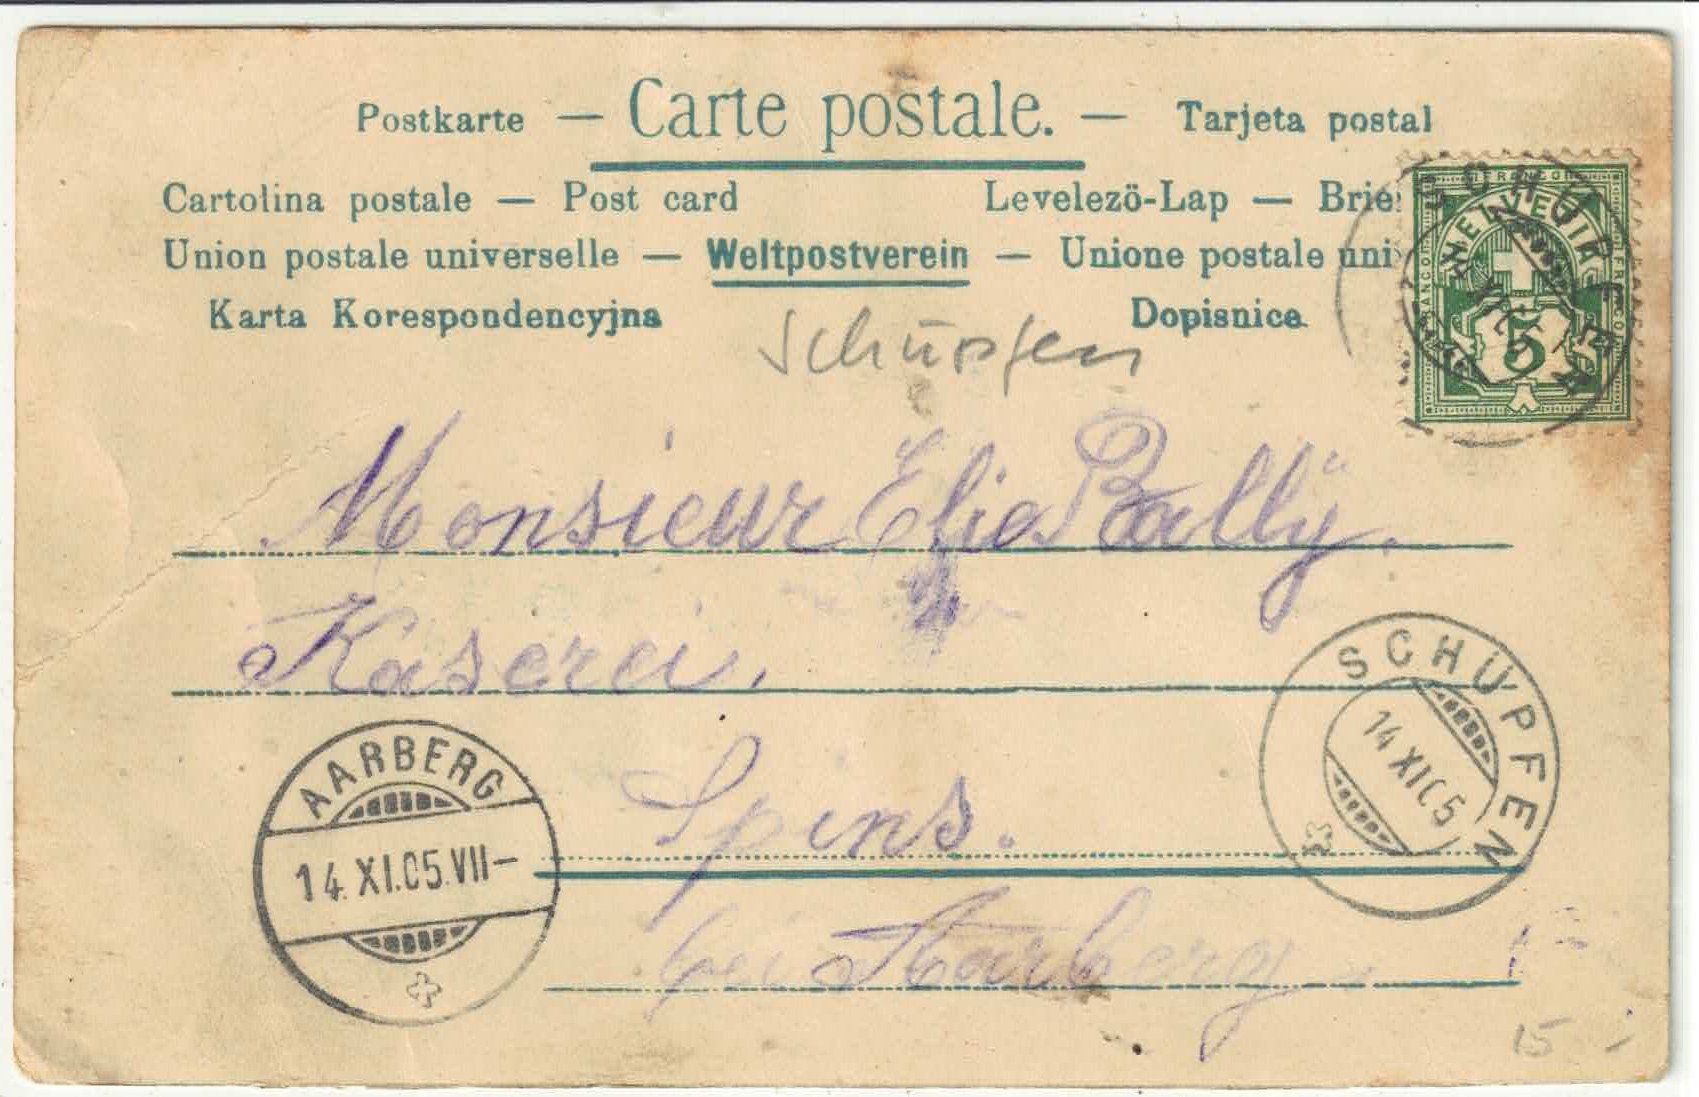 Postkarte — Carte postale. — Tarjeta postal
Cartolina postale — Post card Levelezö-Lap — Brie
Union postale universelle — Weltpostverein — Unione postale uni
Karta Korespondencyjna Dopisnica
Schüpfen
FRANCO
HELVE
5
SCHÜPFEN
Monsieur Elie Bally.
Käserei.
SCHÜPFEN
14 XI 05
AARBERG
14. XI. 05. VII–
Spins.
bei Aarberg
15